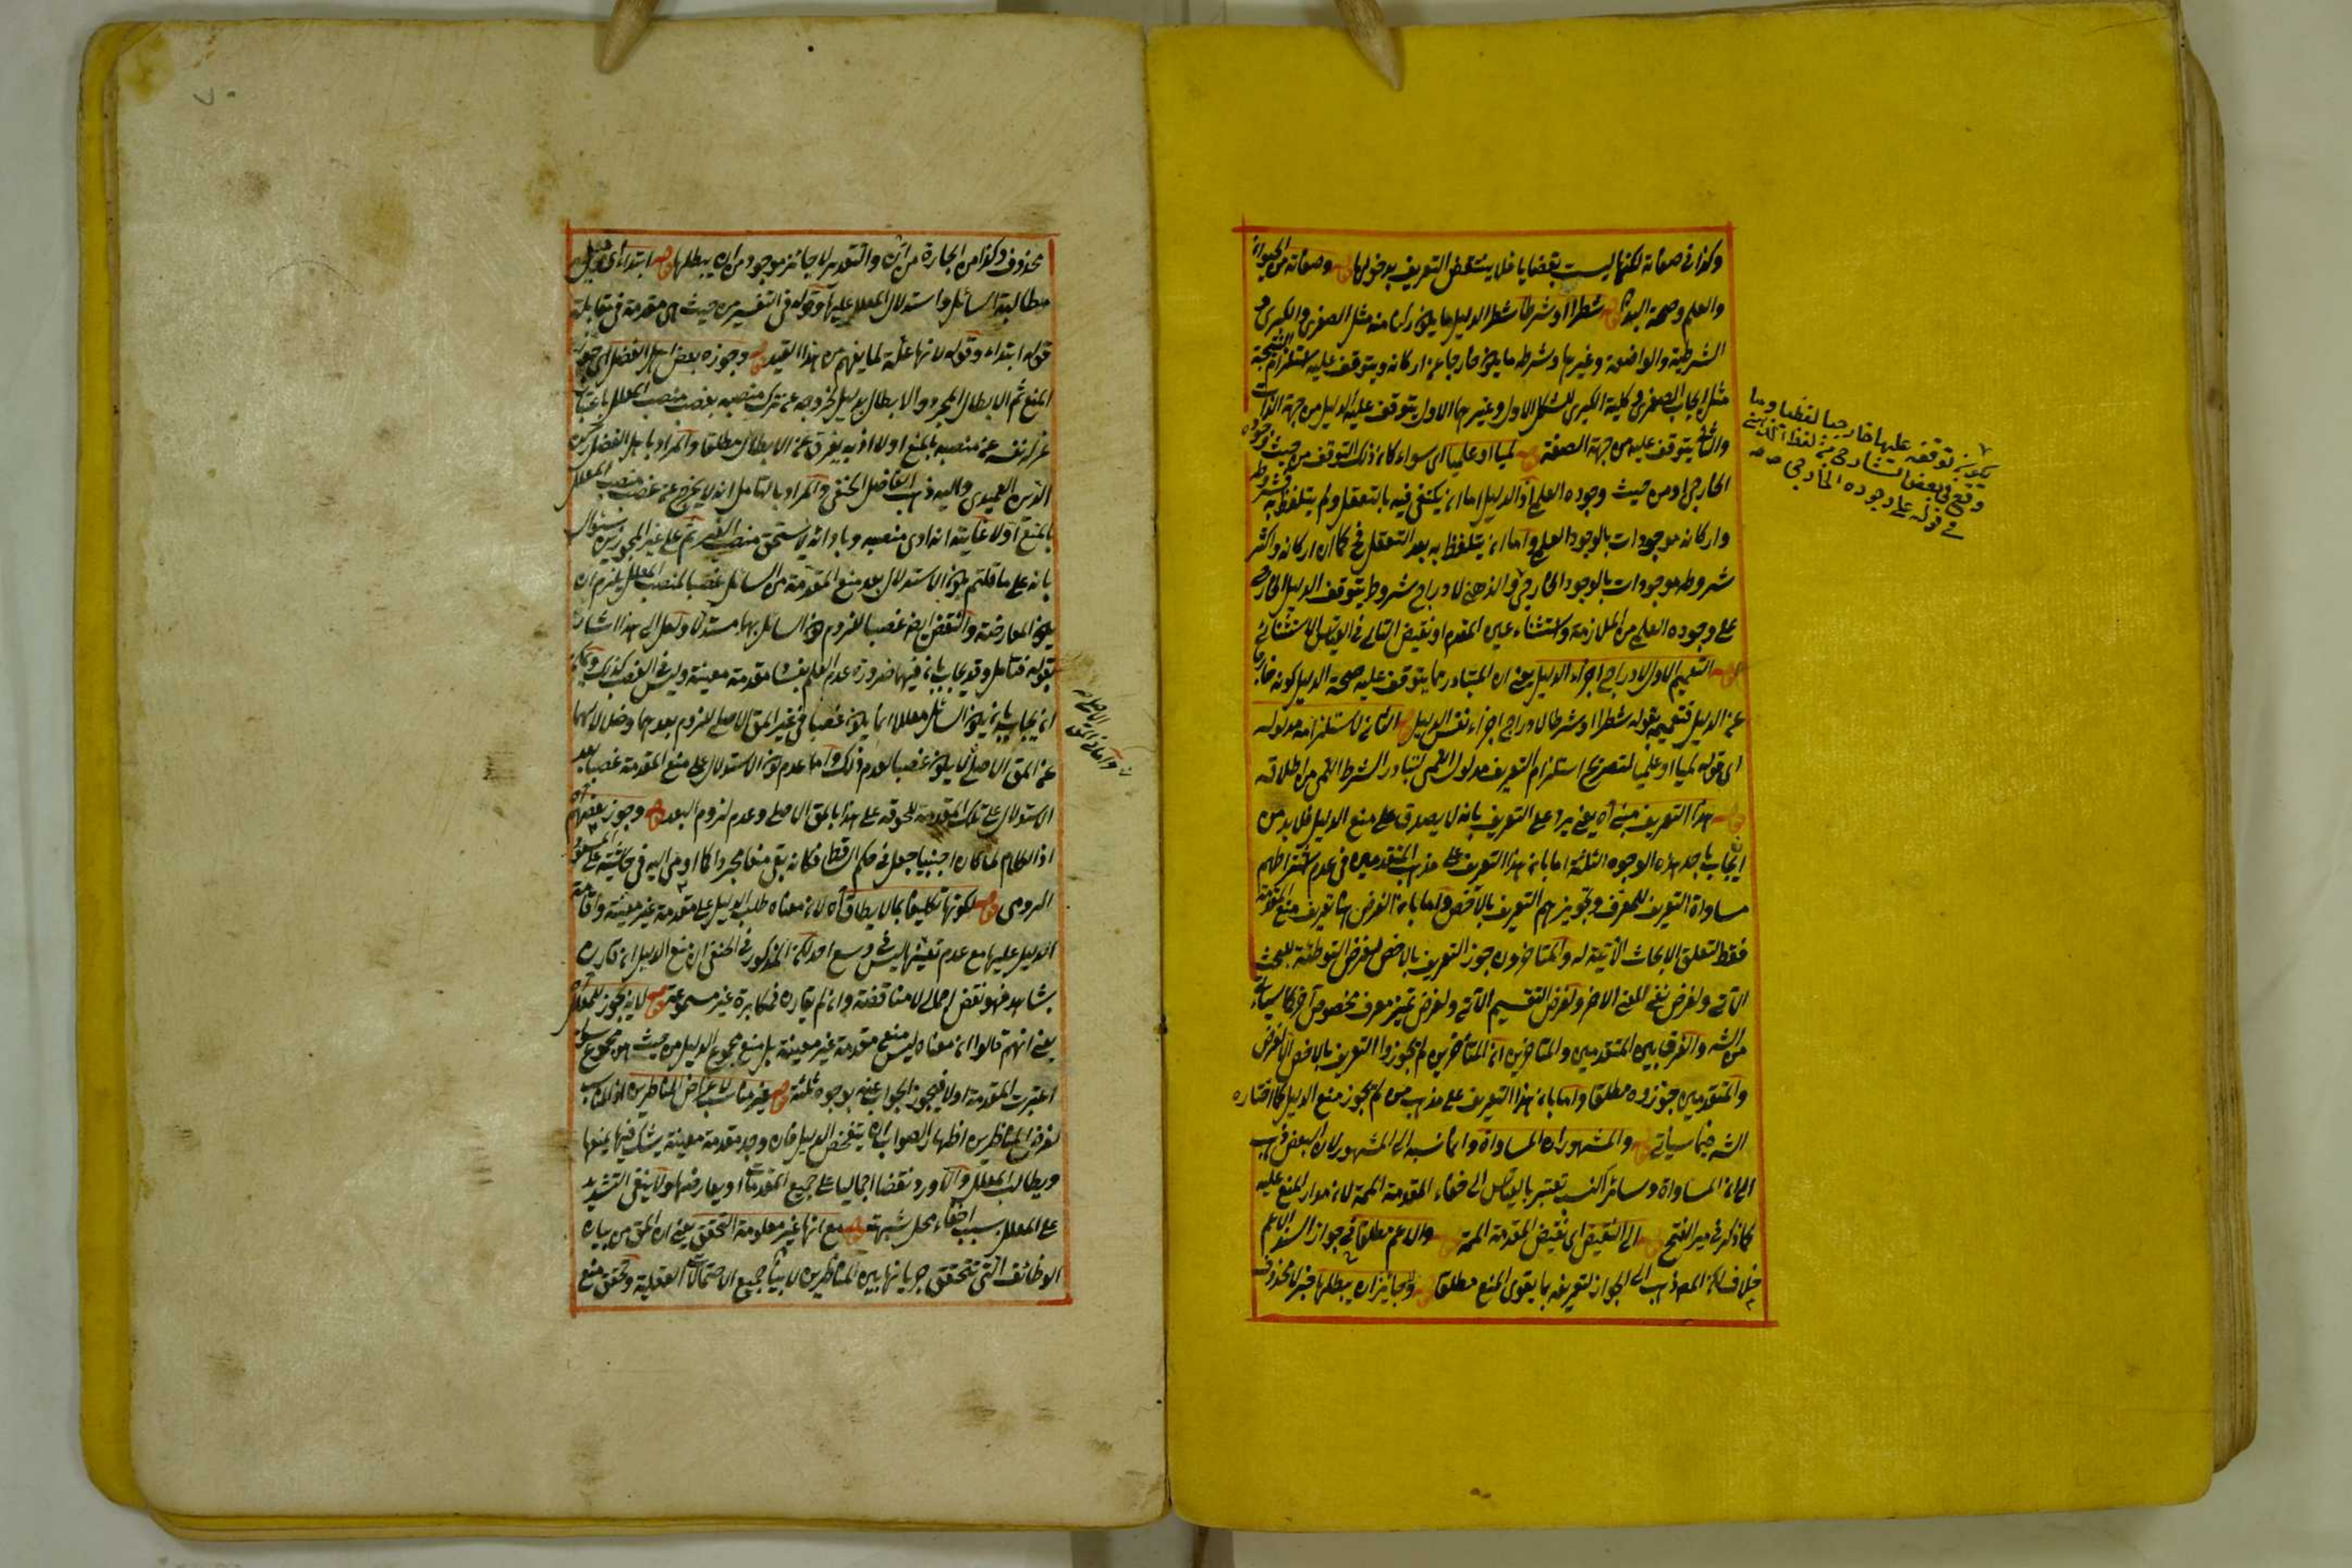 وكذا في صفاته لكنها ليست بقضايا فلا ينتقض التعريف بدخولها قوله وصفاته من الحيوة
والعلم وصحة البدن قوله شطرا او شرطا شطر الدليل ما يكون ركنا منه مثل الصغرى والكبرى و
الشرطية والواضعة وغيرها وشرطه ما يكون خارجا عن اركانه ويتوقف عليه استلزام النتيجة
مثل ايجاب الصغرى وكلية الكبرى للشكل الاول وغيرهما الاول يتوقف عليه الدليل من جهة الذات
والثاني يتوقف عليه من جهة الصفة قوله لميا او علميا اى سواء كان ذلك التوقف من حيث وجوده
الخارجي او من حيث وجوده العلمي اذ الدليل اما ان يكتفى فيه بالتعقل ولم يتلفظ به فشروطه
واركانه موجودات بالوجود العلمي واما ان يتلفظ به بعد التعقل فح كما ان اركانه واكثر
شروطه موجودات بالوجود الخارجي والذهني لادراج شروط يتوقف الدليل الخارجي
على وجوده العلمي من الملازمة واستثناء عين المقدم او نقيض التالى في القياس الاستثنائي
قوله التعميم الاول لادراج اجزاء الدليل يعنى ان المتبادر مما يتوقف عليه صحة الدليل كونه خارجا
عن الدليل فتعميمه بقوله شطرا او شرطا لادراج اجزاء نفس الدليل قوله الثاني لاستلزامه مدلوله
اى قوله لميا او علميا لتصريح استلزام التعريف مدلول العلمي لتبادر الشرط اللمي من اطلاقه
قوله هذا التعريف مبنى آه يعنى يرد على التعريف بانه لا يصدق على منع الدليل فلا بد من
ايجاب باحد هذه الوجوه الثلثة اما بان هذا التعريف على مذهب المتقدمين في عدم اشتراطهم
مساواة التعريف للمعرف وتجويزهم التعريف بالاخص واما بان الغرض هنا تعريف منع المقدمة
فقط لتعلق الابحاث الآتية له والمتاخرون جوز التعريف بالاخص لغرض التوطئة للبحث
الآتي ولغرض نفى اللغة الاخر ولغرض التقسيم الآتي ولغرض تميز معرف مخصوص آخر كما سياتي
من الشه والفرق بين المتقدمين والمتاخرين ان المتأخرين لم يجوزوا التعريف بالاخص الا لغرض
والمتقدمين جوزوه مطلقا واما بان هذا التعريف على مذهب من لم يجوز منع الدليل كما اختاره
الشه فيما سيأتي قوله والمشهور ان المساواة وانما نسبه الى المشهور لان البعض ذهب
الى ان المساواة وسائر النسب تعتبر بالقياس الى خفاء المقدمة الممنوعة لانه مدار المنع عليه
كما ذكر في مير الفتح قوله الى النقيض اى نقيض المقدمة الممنوعة قوله والاعم مطلقا في جواز السند الاعم
خلاف لكن المصه ذهب الى الجواز لتعريفه بما يقوى المنع مطلقا قوله ولا جائز ان يبطلها فخبر لا محذوف
يكون توقفه عليها خارجيا لفظيا وما
وقع في بعض الشارحي من لفظ الذهني
في قوله على وجوده الخارجي صح
محذوف وكذا من الجارة من ان والتقدير لا جائز موجود من ان يبطلها قوله ابتداء اى قبل
مطالبة السائل واستدلال المعلل عليها وقوله في التفسير من حيث هي مقدمة في مقابلة
قوله ابتداء وقوله لانها علة لما يفهم من هذا القيد قوله وجوزه بعض اهل الفضل اى جوز
المنع ثم الابطال المجرد والابطال بدليل لخروجه عن ترك منصبه بغصب منصب المعلل باعتبار
عزل نفسه عن منصبه بالمنع اولا اذ به يفرق عن الابطال مطلقا والمراد باهل الفضل ركن
الدين العميدى واليه ذهب الفاضل الحنفي والمراد بالتامل انه لا يخرج عن غصب منصب المعلل
بالمنع اولا غايته انه ادى منصبه وبادائه لا يستحق منصب الغير ثم على غير المجوزين سؤال
بانه على ما قلتم يكون الاستدلال بعد منع المقدمة من السائل غصبا لمنصب المعلل يلزم ان
يكون المعارضة والنقض ايضا غصبا للزوم كون السائل بهما مستدلا ولعل الى هذا اشار
بقوله فتامل وقد يجاب بان فيهما ضرورة عدم العلم بفساد مقدمة معينة وليس في الغصب كذلك ويمكن
ان يجاب بان يكون السائل معللا انما يكون غصبا في غير المق الاصلي للزوم بعدهما وضلالهما
عن المق الاصلي لا يكون غصبا لعدم ذلك واما عدم كون الاستدلال على منع المقدمة غصبا بعد
الاستدلال على تلك المقدمة للحوقه على هذا بالمق الاصلي وعدم لزوم البعد قوله وجوز بعضهم آه
اذ الكلام لما كان اجنبيا جعل في حكم السقط فكانه بقى منعا مجردا كما اومى اليه في حاشيته على المسعود
الرومى قوله لكونها تكليفا بما لا يطاق آه لان معناه طلب الدليل على مقدمة غير معينة واقامة
الدليل عليها مع عدم تعينها ليس في وسع احد لكن المذكور في الحنفي ان منع الدليل ان قارن
بشاهد فهو نقض اجمالى لا مناقضة وان لم يقارن فمكابرة غير مسموعة قوله لانه يجوز للمعلل آه
يعنى انهم قالوا ان معناه ليس منع مقدمة غير معينة بل منع مجموع الدليل من حيث هو مجموع سواء
اعتبرت المقدمة اولا فيجوز الجواب عنه بوجوه ثلثة قوله غير مناسب لاغراض المناظرين اذ المناسب
لغرض المناظرين اظهار الصواب ان يتفحص الدليل فان وجد مقدمة معينة يشك فيها يمنعها
ويطالب المعلل والا اورد نقضا اجماليا على جميع المقدمات او يعارضها ولا ينبغى التشديد
على المعلل بسبب اخفاء محل شبهته قوله مع انها غير معلومة التحقق يعنى ان المق من بيان
الوظائف التى تتحقق جريانها بين المناظرين لا بيان جميع الاحتمالات العقلية وتحقق منع